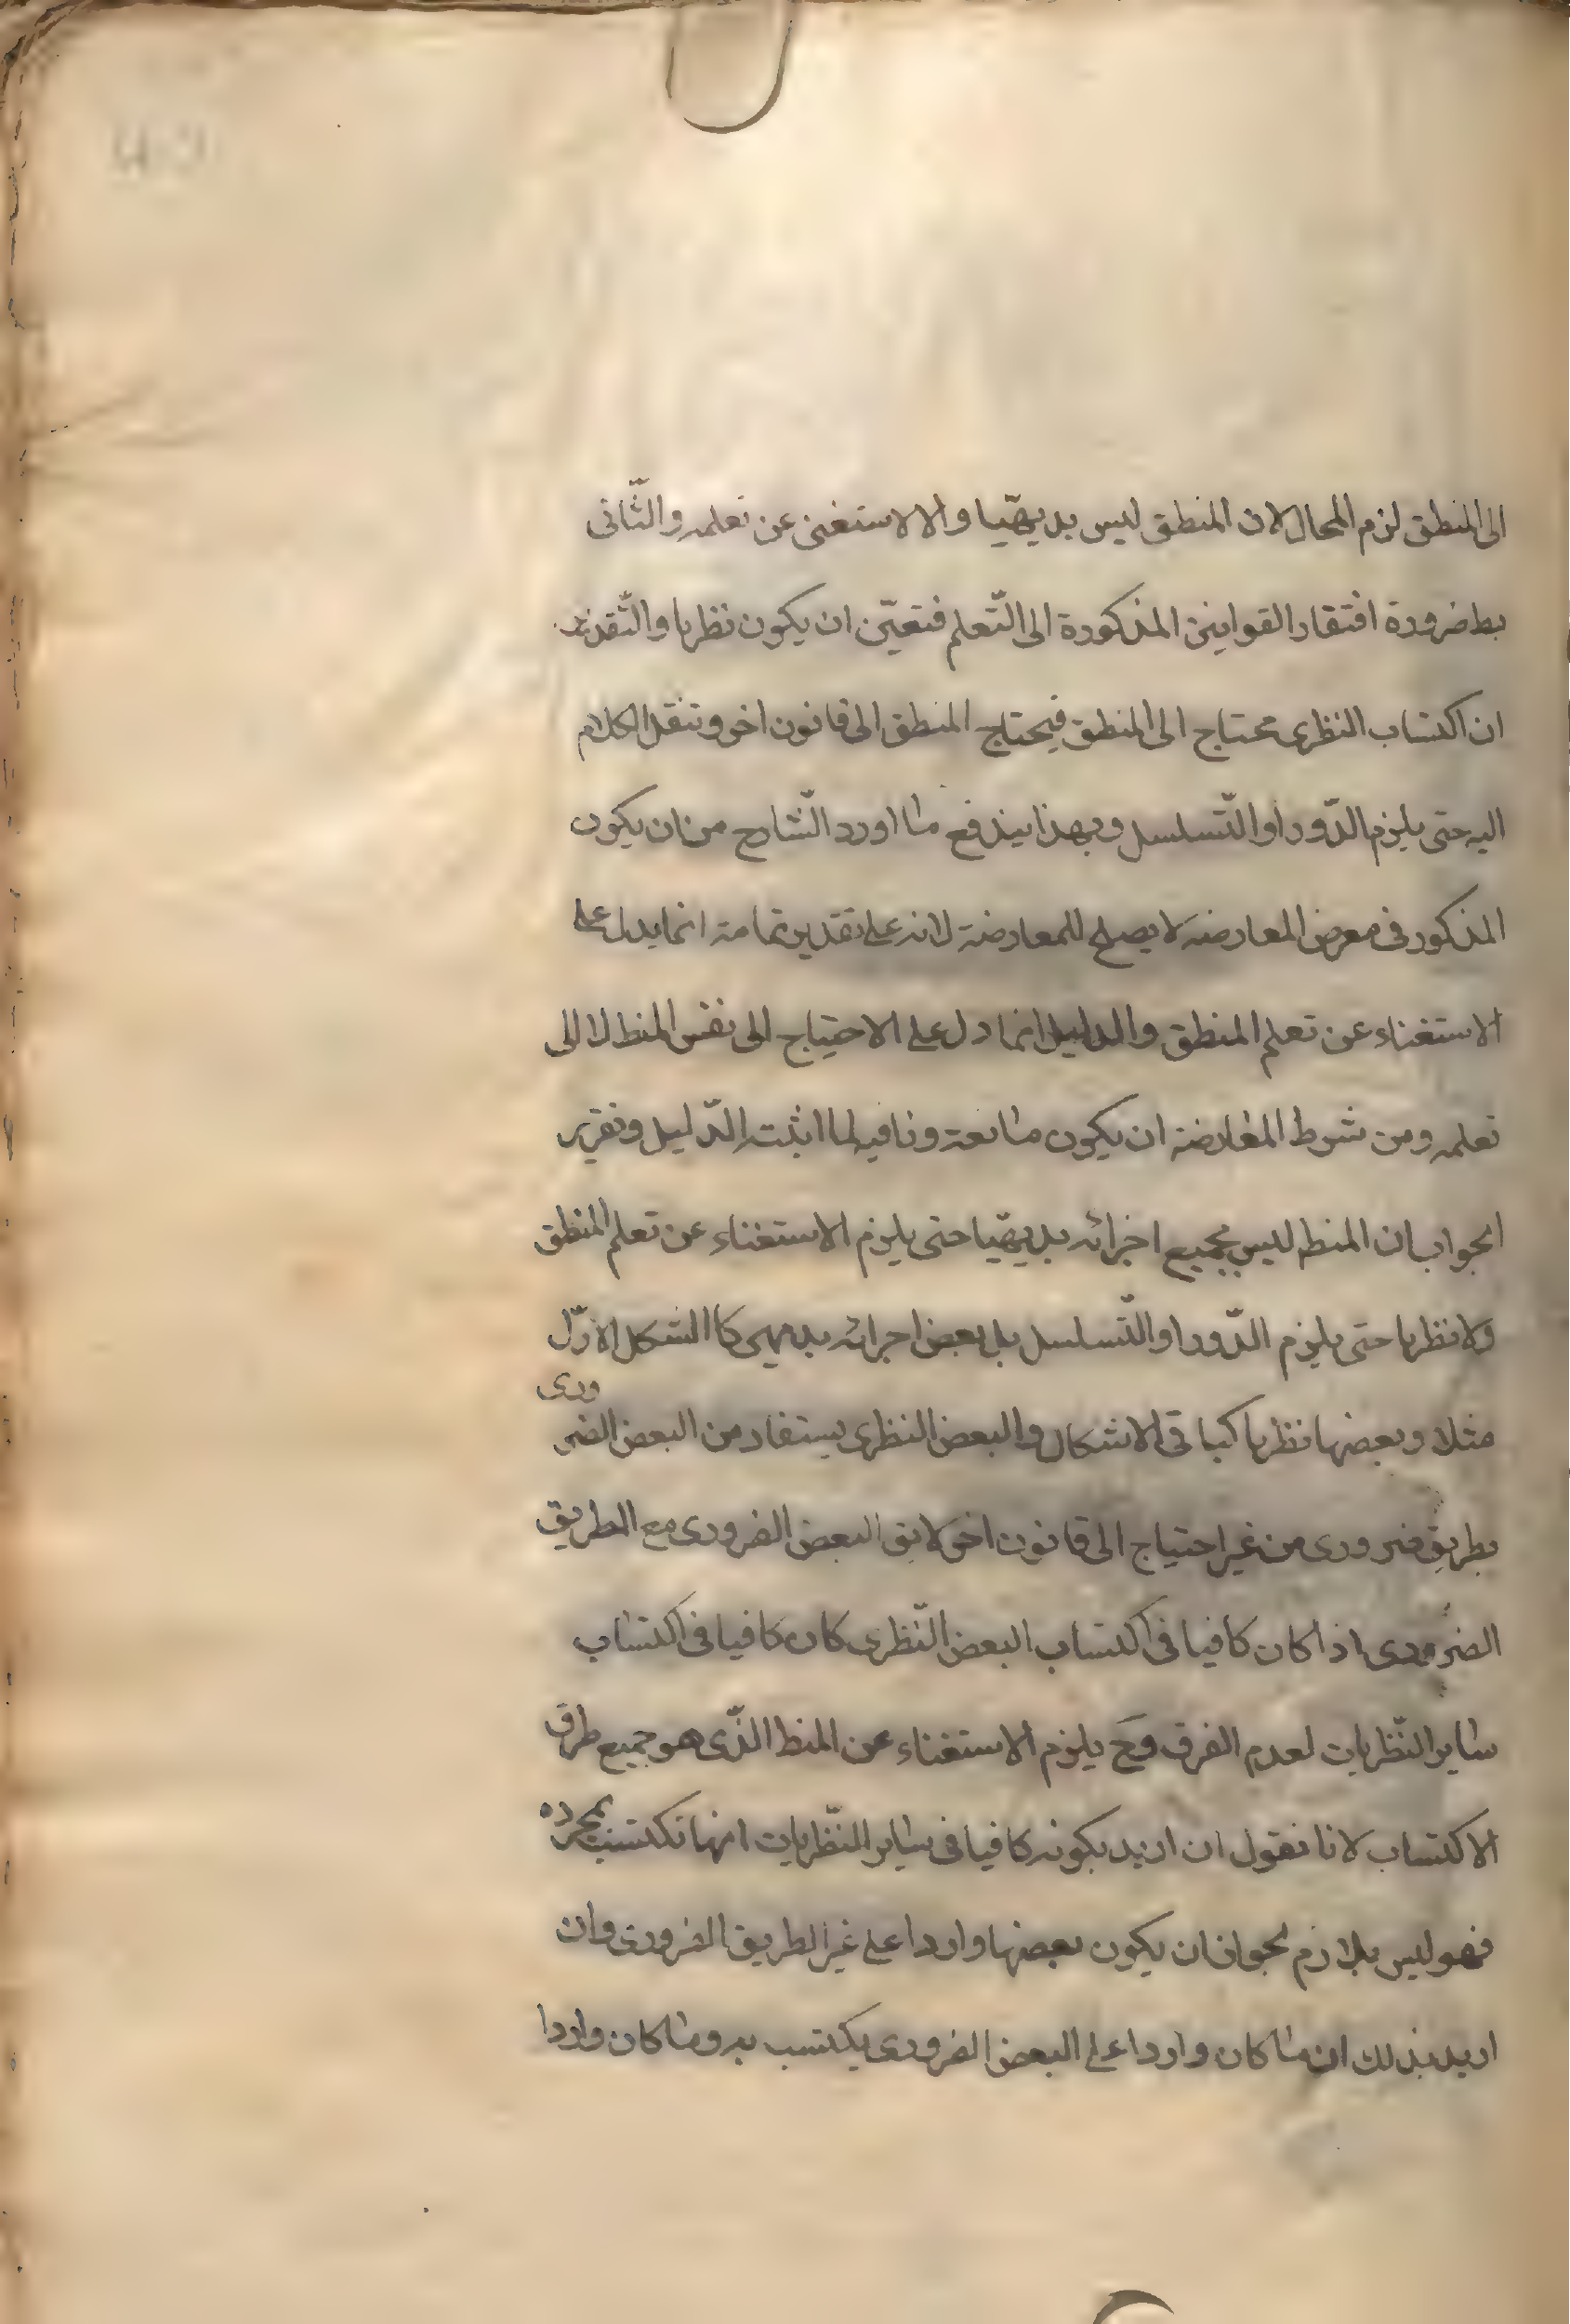 الى المنطق لزم المحال لان المنطق ليس بديهيّا والا لاستغنى عن تعلمه والثّانى
بط ضرورة افتقار القوانين المذكورة الى التّعلم فتعيّن ان يكون نظريا والتّقدير
ان اكتساب النظرى محتاج الى المنطق فيحتاج المنطق الى قانون اخر وننقل الكلام
اليه حتى يلزم الدّور او التّسلسل وبهذا يندفع ما اورد الشّارح من ان يكون
المذكور فى معرض المعارضة لا يصلح للمعارضة لانه على تقدير تمامته انما يدل على
الاستغناء عن تعلم المنطق والدليل انما دل على الاحتياج الى نفس المنط لا الى
تعلمه ومن شرط المعارضة ان يكون مانعة ونافيه لما اثبته الدّليل وتقرير
الجواب ان المنط ليس بجميع اجزائه بديهيّا حتى يلزم الاستغناء عن تعلم المنطق
ولا نظريا حتى يلزم الدّور او التّسلسل بل بعض اجزائه بديهى كا الشكل الاوّل
مثلا وبعضها نظريا كباقى الاشكال والبعض النظرى يستفاد من البعض الضرورى
بطريق ضرورى من غير احتياج الى قانون اخر لايق البعض الضرورى مع الطريق
الضرورى اذا كان كافيا فى اكتساب البعض النّظرى كان كافيا فى اكتساب
ساير النّظريات لعدم الفرق وحَ يلزم الاستغناء عن المنط الذّى هو جميع طرق
الاكتساب لانا نقول ان اريد بكونه كافيا فى ساير النّظريات انها تكتسب بمجرده
فهو ليس بلازم لجواز ان يكون بعضها واردا على غير الطريق الضرورى وان
اريد بذلك ان ما كان واردا على البعض الضرورى يكتسب به وما كان واردا